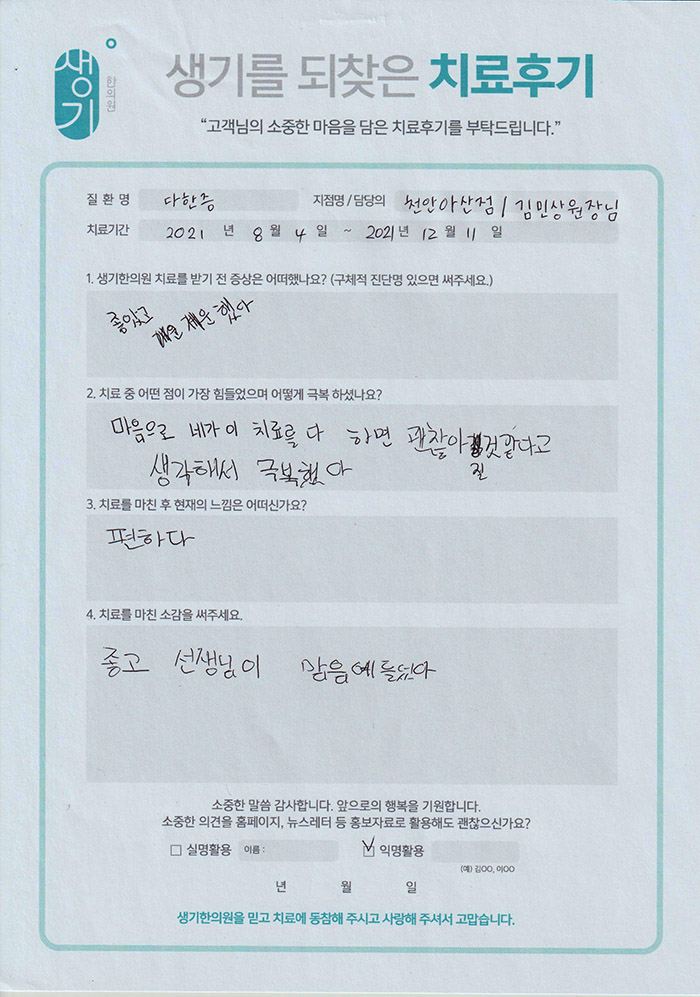 생기
한의원
생기를 되찾은 치료후기
“고객님의 소중한 마음을 담은 치료후기를 부탁드립니다.”
질 환 명 다한증 지점명 / 담당의 천안아산점 / 김민상원장님
치료기간 2021 년 8 월 4 일 ~ 2021 년 12 월 11 일
1. 생기한의원 치료를 받기 전 증상은 어떠했나요? (구체적 진단명 있으면 써주세요.)
좋았고
했다
2. 치료 중 어떤 점이 가장 힘들었으며 어떻게 극복 하셨나요?
마음으로 네가 이 치료를 다 하면 괜찮아질것같다고
생각해서 극복했다
3. 치료를 마친 후 현재의 느낌은 어떠신가요?
편하다
4. 치료를 마친 소감을 써주세요.
좋고 선생님이 맘음에 들었다
소중한 말씀 감사합니다. 앞으로의 행복을 기원합니다.
소중한 의견을 홈페이지, 뉴스레터 등 홍보자료로 활용해도 괜찮으신가요?
□ 실명활용 이름 : ☑ 익명활용
(예) 김OO, 이OO
년 월 일
생기한의원을 믿고 치료에 동참해 주시고 사랑해 주셔서 고맙습니다.